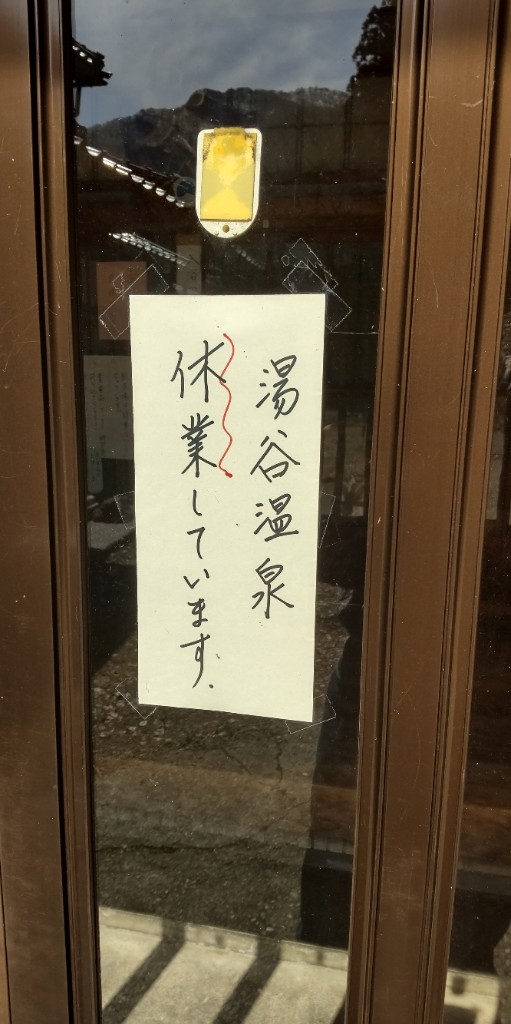 湯谷温泉
休業しています.